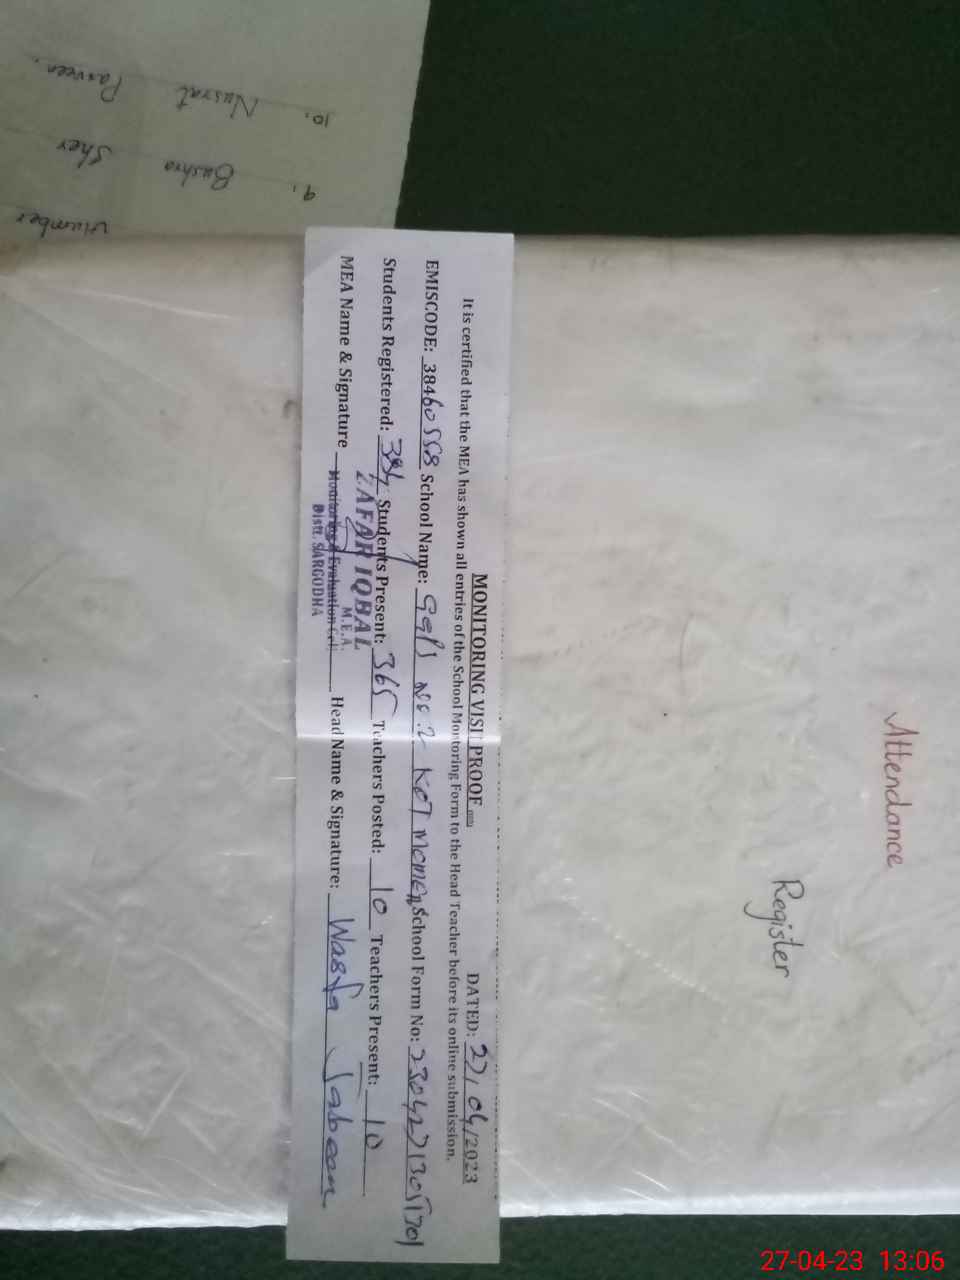 MONITORING VISIT PROOF DATED: 27/04/2023
It is certified that the MEA has shown all entries of the School Montoring Form to the Head Teacher before its online submission.
EMISCODE: 38460558 School Name: GGPS No.2 KOT MOMEN School Form No:
Students Registered: 384 Students Present: 365 Teachers Posted: 10 Teachers Present: 10
MEA Name & Signature Head Name & Signature: Wasfa Jabeen
ZAFAR IQBAL
M.E.A.
Monitoring & Evaluation Cell
Distt. SARGODHA
Attendance
Register
Number
9, Bushra Sher
10, Nusrat Parveen.
27-04-23 13:06